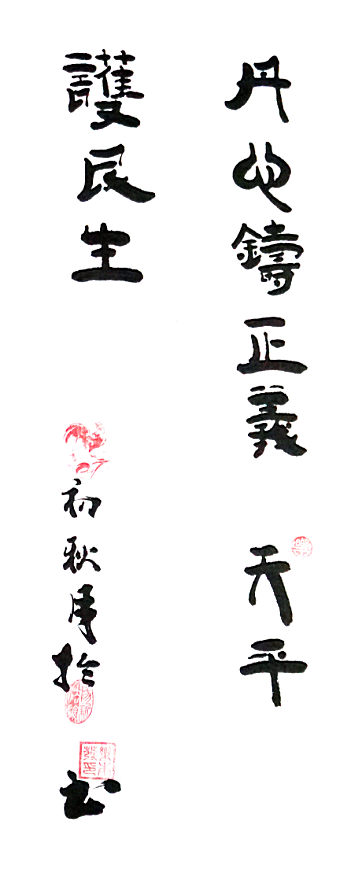 丹心鑄正義 天平
護民生
初秋 書